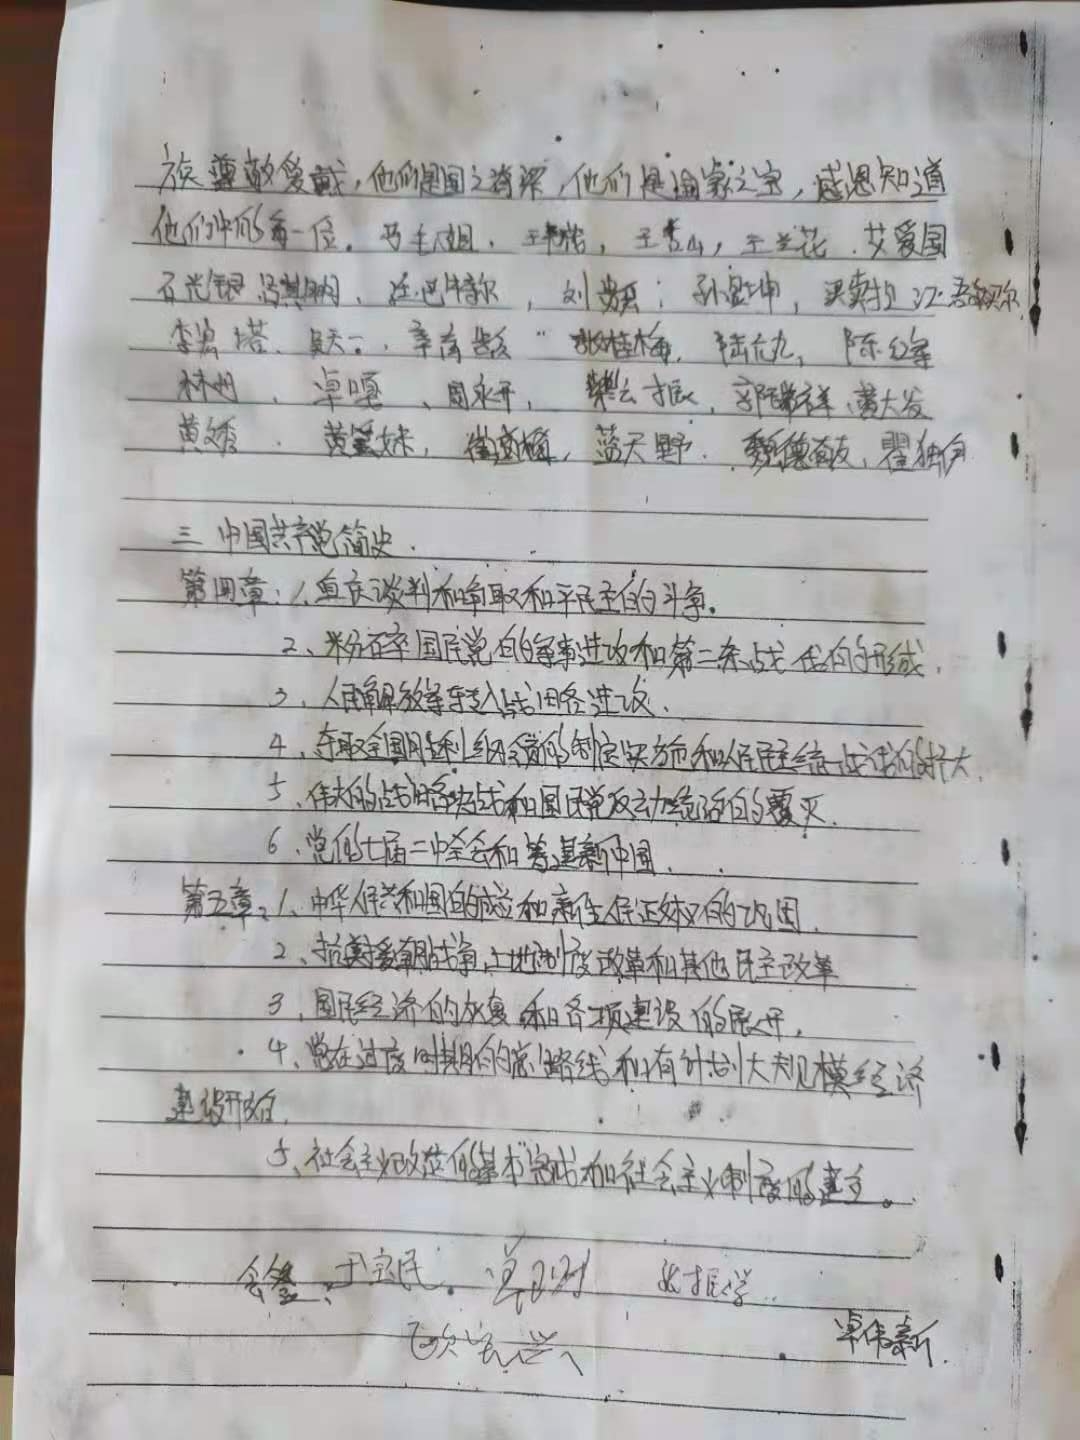 族尊敬爱戴，他们是国之脊梁，他们是国家之宝，感恩知道
他们中的每一位。马毛姐、王书茂，王占山，王兰花．艾爱国
石光银、吕其明、廷·巴特尔，刘贵今，孙景坤，买买提江·吾买尔，
李宏塔、吴天一、辛育龄、张桂梅，陆元九，陈红军
林丹、卓嘎、周永开，柴云振，郭瑞祥，黄大发
黄文秀．黄宝妹，崔道植，蓝天野．魏德友，瞿独伊
三 中国共产党简史．
第四章：1、重庆谈判和争取和平民主的斗争。
2、粉碎国民党的军事进攻和第二条战线的形成．
3、人民解放军转入战略进攻．
4、夺取全国胜利纲领的制定实施和人民民主统一战线的扩大．
5、伟大的战略决战和国民党反动统治的覆灭．
6、党的七届二中全会和筹建新中国．
第五章、1、中华人民共和国的成立和新生人民政权的巩固．
2、抗美援朝战争、土地制度改革和其他民主改革
3、国民经济的恢复和各项建设的展开．
4、党在过度时期的总路线和有计划大规模经济
建设开始．
5、社会主义改造的基本完成和社会主义制度的建立。
会签：于宝民．
卓伟新．